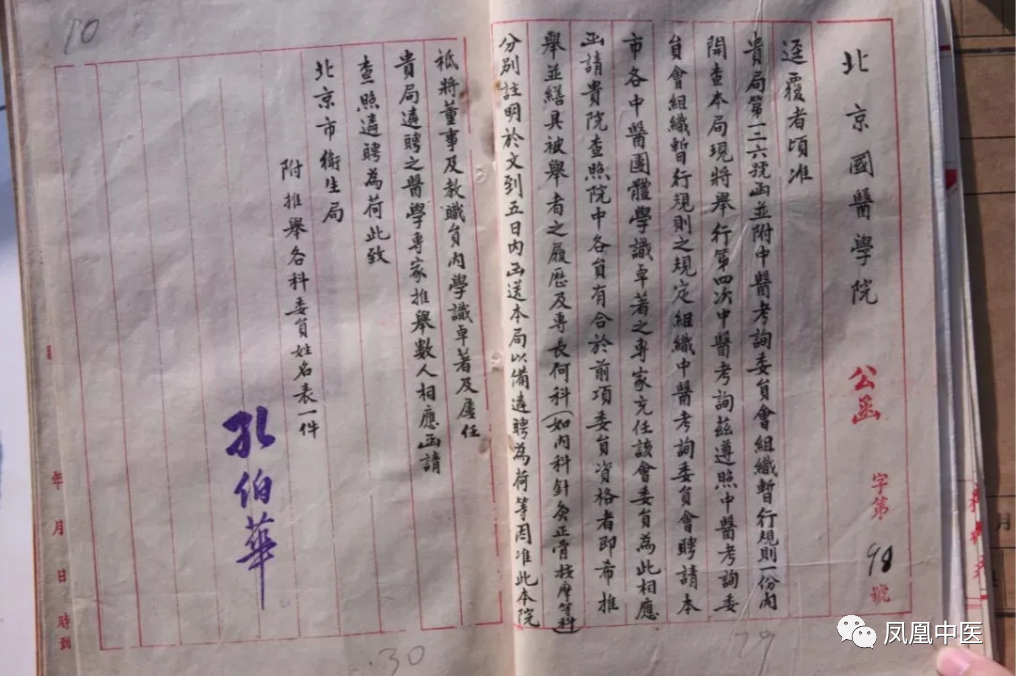 北京國醫學院 公函 字第 98 號
逕覆者頃准
貴局第一二六號函並附中醫考詢委員會組織暫行規則一份內
開查本局現將舉行第四次中醫考詢茲遵照中醫考詢委
員會組織暫行規則之規定組織中醫考詢委員會聘請本
市各中醫團體學識卓著之專家充任該會委員為此相應
函請貴院查照院中各員有合於前項委員資格者即希推
舉並繕具被舉者之履歷及專長何科(如內科針灸正骨按摩等科)
分別註明於文到五日內函送本局以備遴聘為荷等因准此本院
祇將董事及教職員內學識卓著及屢任
貴局遴聘之醫學專家推舉數人相應函請
查照遴聘為荷此致
北京市衛生局
附推舉各科委員姓名表一件
孔伯華
年 月 日 時到
10
30
29
凤凰中医